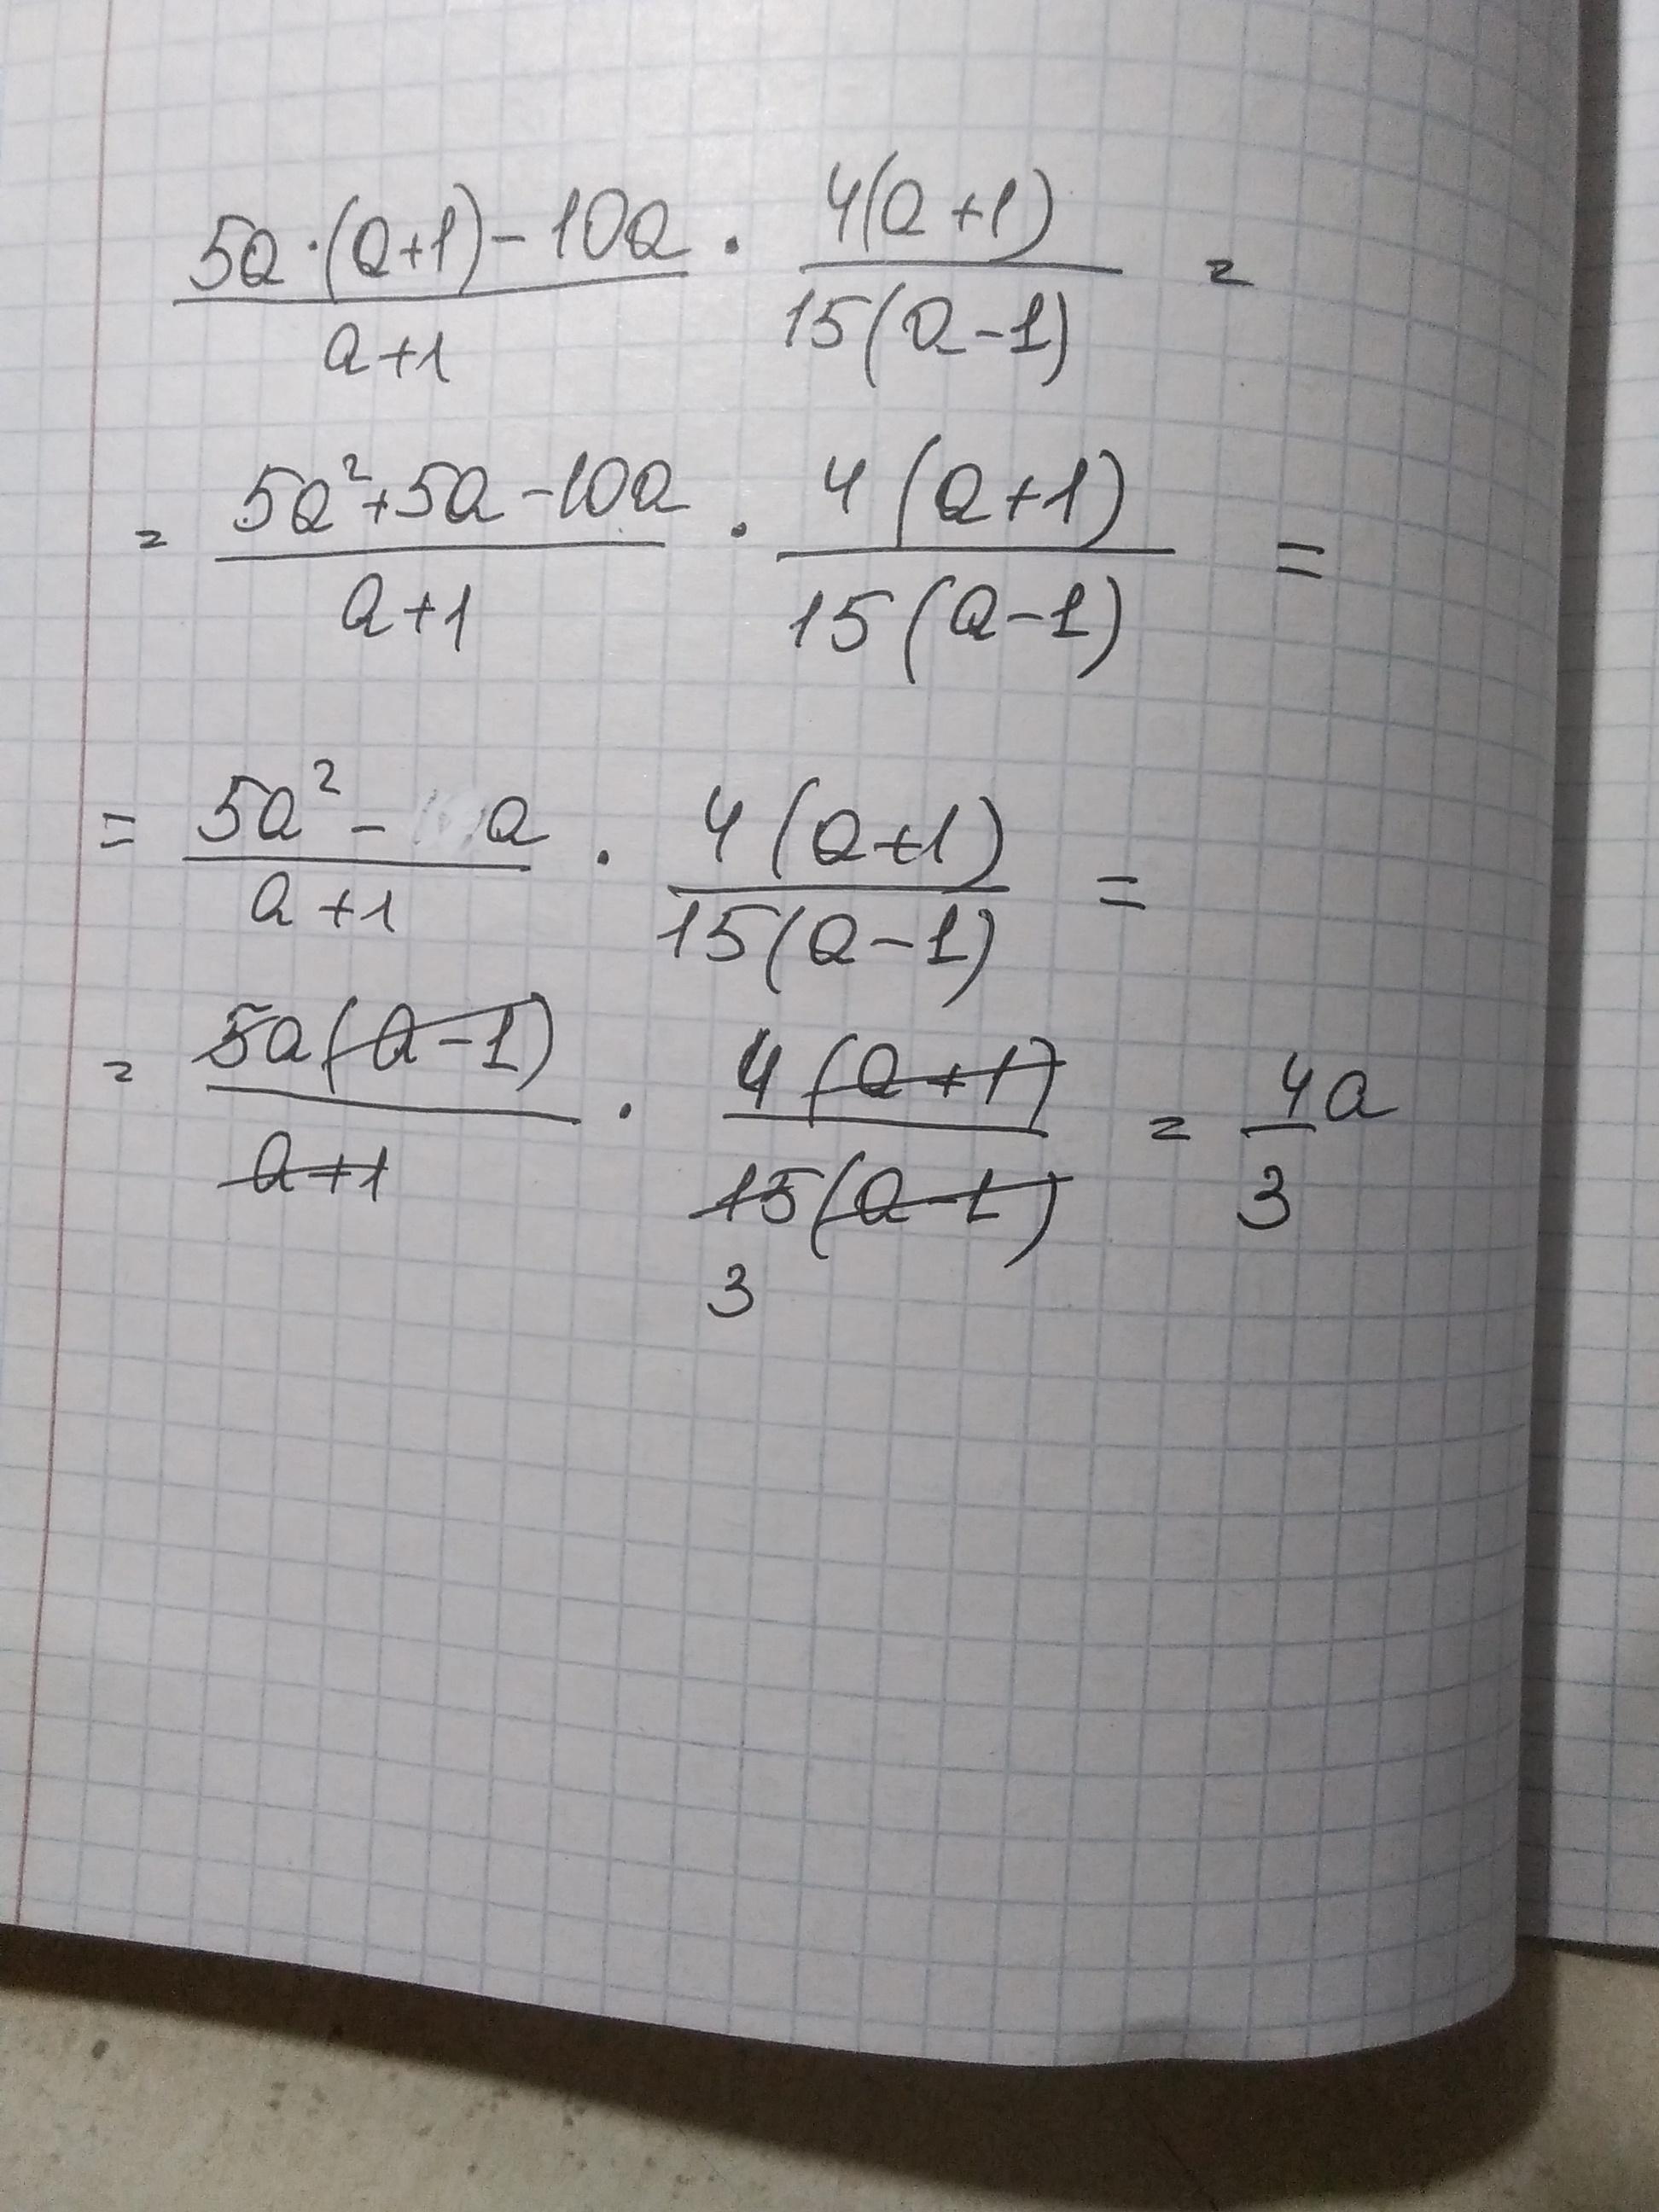 (5a·(a+1)-10a)/(a+1) · (4(a+1))/(15(a-1)) =
= (5a²+5a-10a)/(a+1) · (4(a+1))/(15(a-1)) =
= (5a² - a)/(a+1) · (4(a+1))/(15(a-1)) =
= (5a(a-1))/(a+1) · (4(a+1))/(15(a-1)) = (4a)/3
3